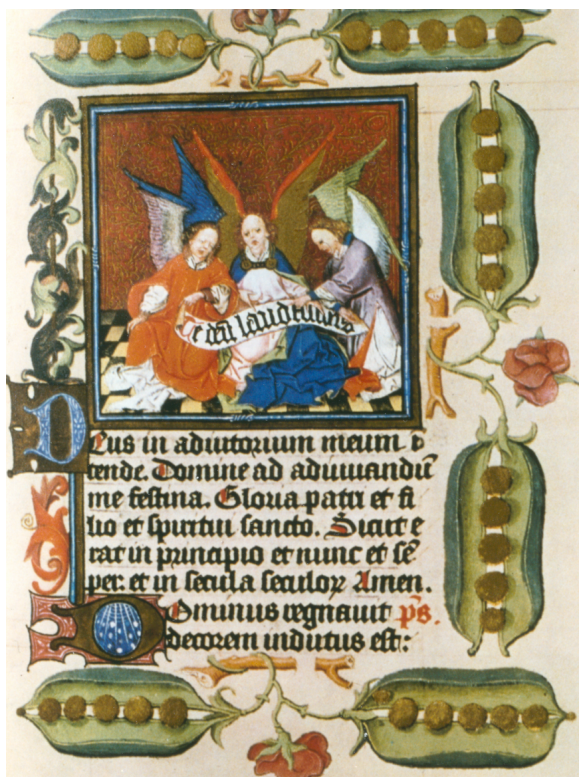 Te deū laudamus
Deus in adiutorium meum ī
tende. Domine ad adiuuandū
me festina. Gloria patri et fi
lio et spiritui sancto. Sicut e
rat in principio et nunc et sē
per: et in secula seculoꝝ Amen.
Dominus regnauit p̄s.
decorem indutus est: